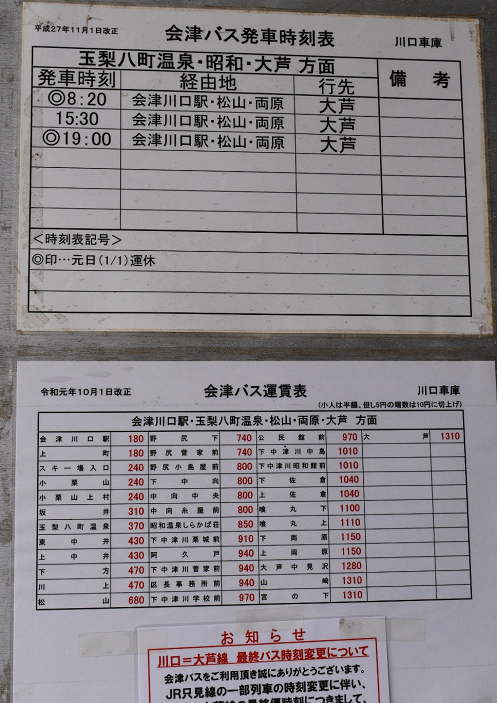 平成27年11月1日改正 会津バス発車時刻表 川口車庫
玉梨八町温泉・昭和・大芦 方面 備考
発車時刻 経由地 行先
◎8:20 会津川口駅・松山・両原 大芦
15:30 会津川口駅・松山・両原 大芦
◎19:00 会津川口駅・松山・両原 大芦
<時刻表記号>
◎印…元日(1/1)運休
令和元年10月1日改正 会津バス運賃表 川口車庫
(小人は半額、但し5円の端数は10円に切上げ)
会津川口駅・玉梨八町温泉・松山・両原・大芦 方面
会津川口駅 180 野尻下 740 公民館前 970 大芦 1310
上町 180 野尻菅家前 740 下中津川中島 1010
スキー場入口 240 野尻小島屋前 800 下中津川昭和館前 1010
小栗山 240 下中向 800 下佐倉 1040
小栗山上村 240 中向中央 800 上佐倉 1040
坂井 310 中向糸屋前 800 喰丸下 1100
玉梨八町温泉 370 昭和温泉しらかば荘 850 喰丸上 1110
東中井 430 下中津川栗城前 910 下両原 1150
上中井 430 阿久戸 940 上両原 1150
下方 470 下中津川菅家前 940 大芦中見沢 1280
川上 470 区長事務所前 940 山崎 1310
松山 680 下中津川学校前 970 宮の下 1310
お知らせ
川口=大芦線 最終バス時刻変更について
会津バスをご利用頂き誠にありがとうございます。
JR只見線の一部列車の時刻変更に伴い、